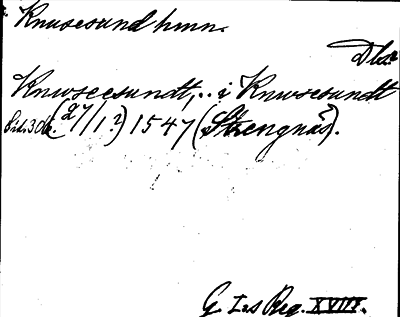 Knusesund hmn.
Dlsl
Knwseesundt, .. i Knwsesundt
sid. 306. (27/1?) 1547 (Strengnäs).
G. I:s Reg. XVIII.